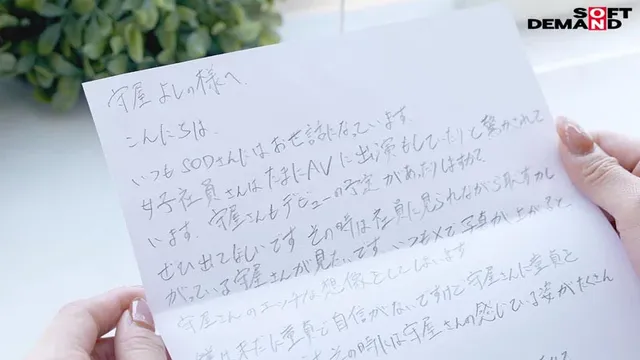 SOFT
DEMAND
守屋よしの様へ
こんにちは、
いつもSODさんにはお世話になっています。
女子社員さんはたまにAVに出演もしていたりと驚かされて
います。守屋さんもデビューの予定があったりしますか？
ぜひ出てほしいです。その時は社員に見られながら恥ずかし
がっている守屋さんが見たいです。いつもXで写真が上がると
守屋さんのエッチな想像をしてしまいます
未だに童貞で自信がないですけど守屋さんに童貞を
その時には守屋さんの感じている姿がたくさん